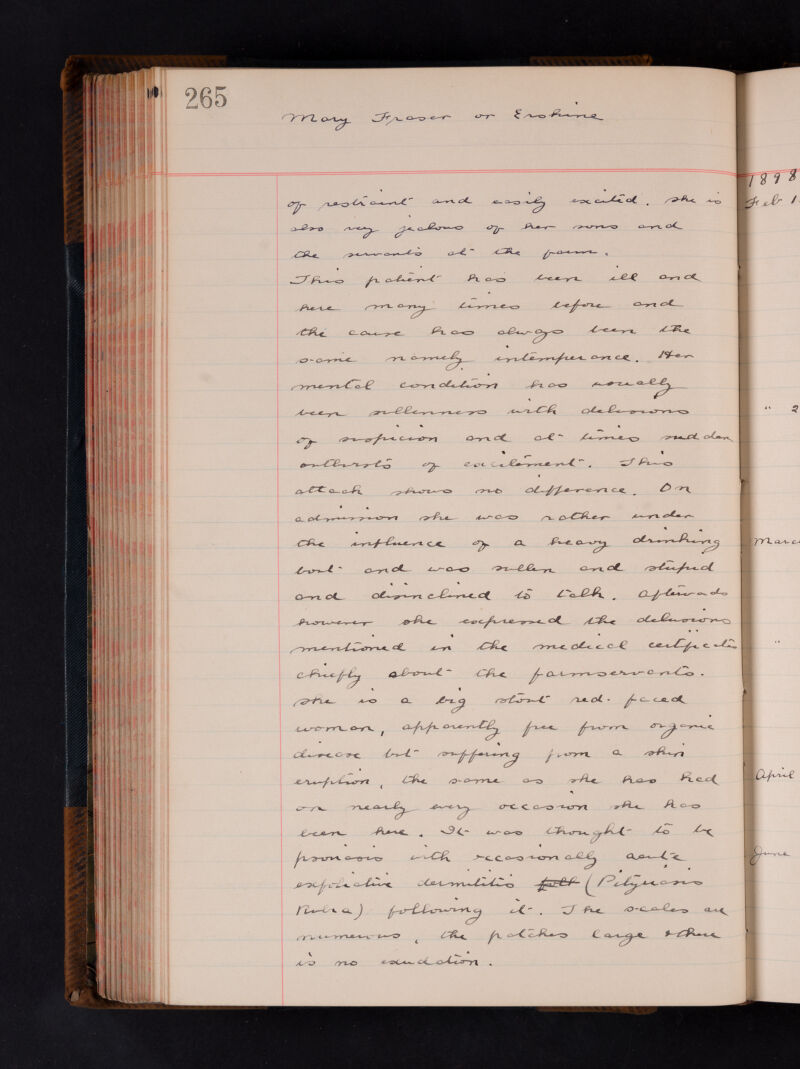 265
Mary Fraser or Erskine
of restraint and easily excited. She is
also very jealous of her sons and
the servants at the farm.
This patient has been ill and
here many times before and
the cause has always been the
same namely intemperance. Her
mental condition has usually
been sullenness with delusions
of suspicion and at times sudden
outbursts of excitement. This
attack shows no difference. On
admission she was rather under
the influence of a heavy drinking
bout and was sullen and stupid
and disinclined to talk. Afterwards
however she expressed the delusions
mentioned in the medical certificates
chiefly about the farmservants.
She is a big stout red-faced
woman, apparently free from organic
disease but suffering from a skin
eruption, the same as she has had
on nearly every occasion she has
been here. It was thought to be
psoriasis with occasionally acute
exfoliative dermititis (Pityriasis
Rubra) following it. The scales are
numerous, the patches large & there
is no exudation.
1898
Feb 1
" 2
Marc
"
April
June